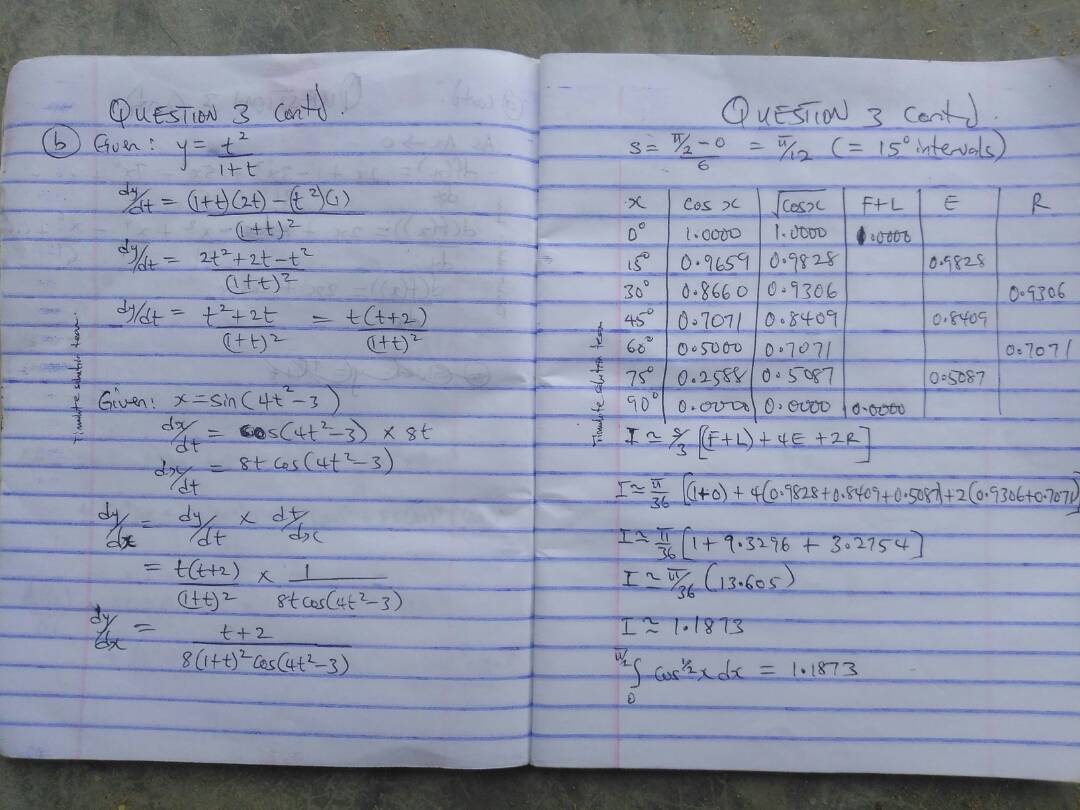 QUESTION 3 Contd.
(b) Given: y = t²/(1+t)
dy/dt = ((1+t)(2t) − (t²)(1))/(1+t)²
dy/dt = (2t²+2t−t²)/(1+t)²
dy/dt = (t²+2t)/(1+t)² = t(t+2)/(1+t)²
Given: x = sin(4t²−3)
dx/dt = cos(4t²−3) × 8t
dx/dt = 8t cos(4t²−3)
dy/dx = dy/dt × dt/dx
= t(t+2)/(1+t)² × 1/(8t cos(4t²−3))
dy/dx = (t+2)/(8(1+t)² cos(4t²−3))
QUESTION 3 Contd.
S = (π/2 − 0)/6 = π/12 (= 15° intervals)
x | cos x | √cos x | F+L | E | R
0° | 1.0000 | 1.0000 | 1.0000
15° | 0.9659 | 0.9828 | | 0.9828
30° | 0.8660 | 0.9306 | | | 0.9306
45° | 0.7071 | 0.8409 | | 0.8409
60° | 0.5000 | 0.7071 | | | 0.7071
75° | 0.2588 | 0.5087 | | 0.5087
90° | 0.0000 | 0.0000 | 0.0000
I ≃ S/3 [(F+L) + 4E + 2R]
I ≃ π/36 [(1+0) + 4(0.9828+0.8409+0.5087)+2(0.9306+0.7071)]
I ≃ π/36 [1 + 9.3296 + 3.2754]
I ≃ π/36 (13.605)
I ≃ 1.1873
∫₀^(π/2) cos^(1/2) x dx = 1.1873